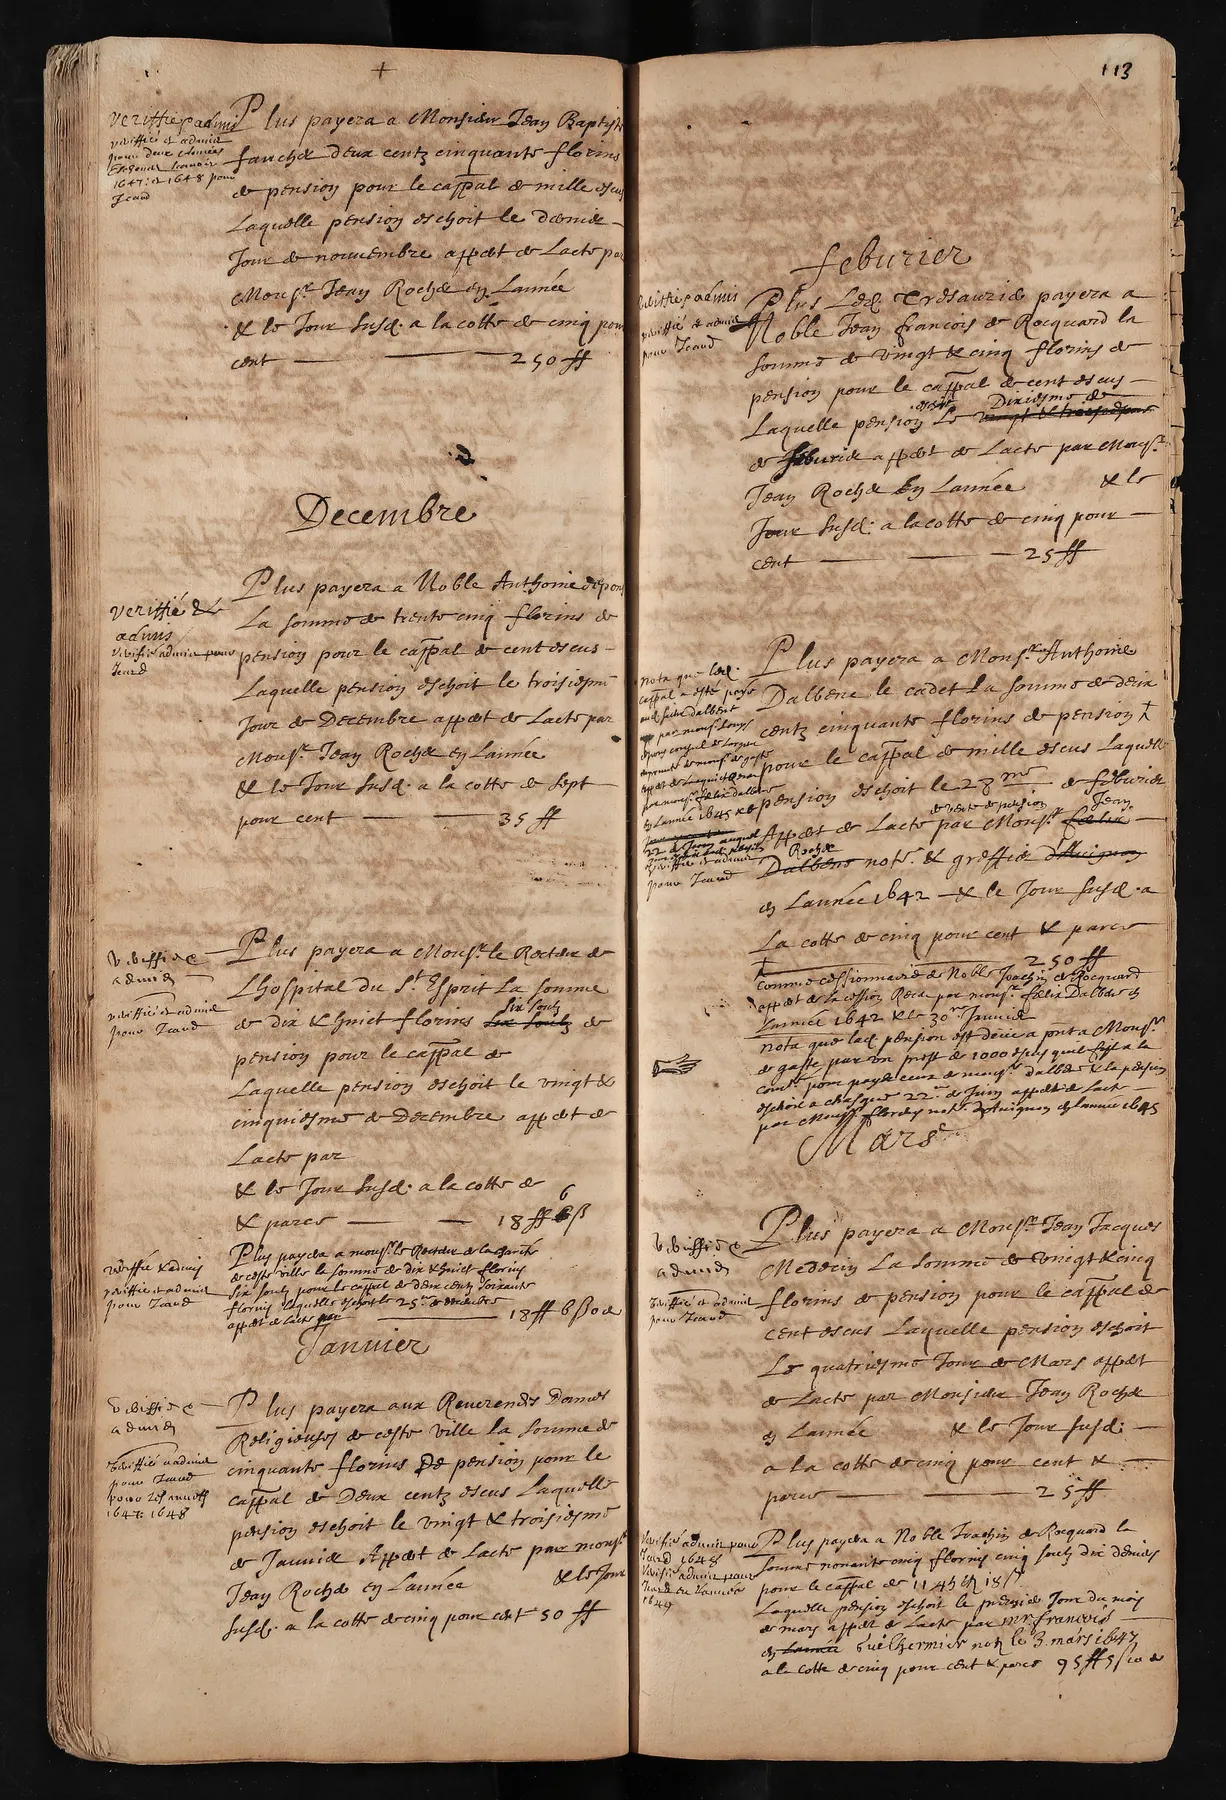 +
veriffié & admis
veriffié et admis
pour deux années
1647: & 1648 pour
Icard
Plus payera a Monsieur Jean Baptiste
fauchier deux centz cinquante florins
de pension pour le cappal de mille escus
Laquelle pension eschoit le dernier
Jour de nouuembre appert de Lacte par
Monsr Jean Rochier en Lannée
& le Jour susd. a la cotte de cinq pour
cent 250 ff
Decembre
veriffié &
admis
veriffié admis pour
Icard
Plus payera a Noble Anthoine
La somme de trente cinq florins de
pension pour le cappal de cent escus
Laquelle pension eschoit le troisiesme
Jour de Decembre appert de Lacte par
Monsr Jean Rochier en Lannée
& le Jour susd. a la cotte de sept
pour cent 35 ff
Veriffié &
admis
veriffié et admis
pour Icard
Plus payera a Monsr le Recteur de
Lhospital du St Esprit La somme
de dix & huict florins six soulz de
six soulz
pension pour le cappal de
Laquelle pension eschoit le vingt &
cinquiesme de Decembre appert de
Lacte par
& le Jour susd. a la cotte de
& parco 18 ff 6 ß
6
veriffié & admis
veriffié et admis
pour Icard
Plus payera a monsr le Recteur de la charité
de ceste ville la somme de dix & huict florins
six soulz pour le cappal de deux centz soixante
florins Laquelle eschoit le 25e de decembre
appert de lacte par 18 ff 6 ß 0 d
Januier
Veriffié &
admis
Veriffié & admis
pour Icard
pour les années
1647: 1648
Plus payera aux Reuerendes Dames
Religieuses de ceste ville la somme de
cinquante florins De pension pour le
cappal de Deux centz escus Laquelle
pension eschoit le vingt & troisiesme
de Januier Appert de Lacte par monsr
Jean Rochier en Lannée & le Jour
susd. a la cotte de cinq pour cent 50 ff
113
feburier
veriffié & admis
veriffié et admis
pour Icard
Plus Led. Tresaurier payera a
Noble Jean francois de Rocquard la
somme de vingt & cinq florins de
pension pour le cappal de cent escus
Laquelle pension eschoit le Dixiesme de
de feburier appert de Lacte par Monsr
Jean Rochier En Lannée & le
Jour susd. a la cotte de cinq pour
cent 25 ff
nota que led.
cappal a esté payé
aud. sieur dalbene
par monsr Louys
en Lannée 1645
22 de Juin
veriffié et admis
pour Icard
Plus payera a Monsr Anthoine
Dalbene le cadet La somme de deux
centz cinquante florins de pension
pour le cappal de mille escus Laquelle
pension eschoit le 28me de feburier
Appert de Lacte de vente de pension par Monsr Jean
Rochier
Dalbene notre & greffier d'Auignon
en Lannée 1642 & le Jour susd. a
La cotte de cinq pour cent & parco
250 ff
comme cessionnaire de Noble Joachin de Rocquard
appert de la cession Receu par monsr félix Dalbene en
Lannée 1642 & le 30me Januier
nota que lad. pension est deüe a pnt a Monsr
de gaste par un prest de 1000 escus quil fist a la
comté pour payer ceux de monsr dalbene & la pension
eschoit a chasque 22me de Juin appert de lacte
par Monsr notre d'Auignon en lannée 1645
Mars
Veriffié &
admis
Veriffié et admis
pour Icard
Plus payera a Monsr Jean Jacques
Medecin La somme de vingt & cinq
florins de pension pour le cappal de
cent escus Laquelle pension eschoit
Le quatriesme Jour de Mars appert
de Lacte par Monsieur Jean Rochier
en Lannée & le Jour susd.
a la cotte de cinq pour cent &
parco 25 ff
Veriffié admis pour
Icard 1648
Veriffié admis pour
Icard en Lannée
1649
Plus payera a Noble Joachin de Rocquard la
somme nonante cinq florins cinq soulz dix deniers
pour le cappal de 1145 ff 18 ß
Laquelle pension eschoit le premier Jour du mois
de mars appert de Lacte par mre francois
en Lannée Guilhermier notre le 3 mars 1647
a la cotte de cinq pour cent & parco 95 ff 5 ß 10 d